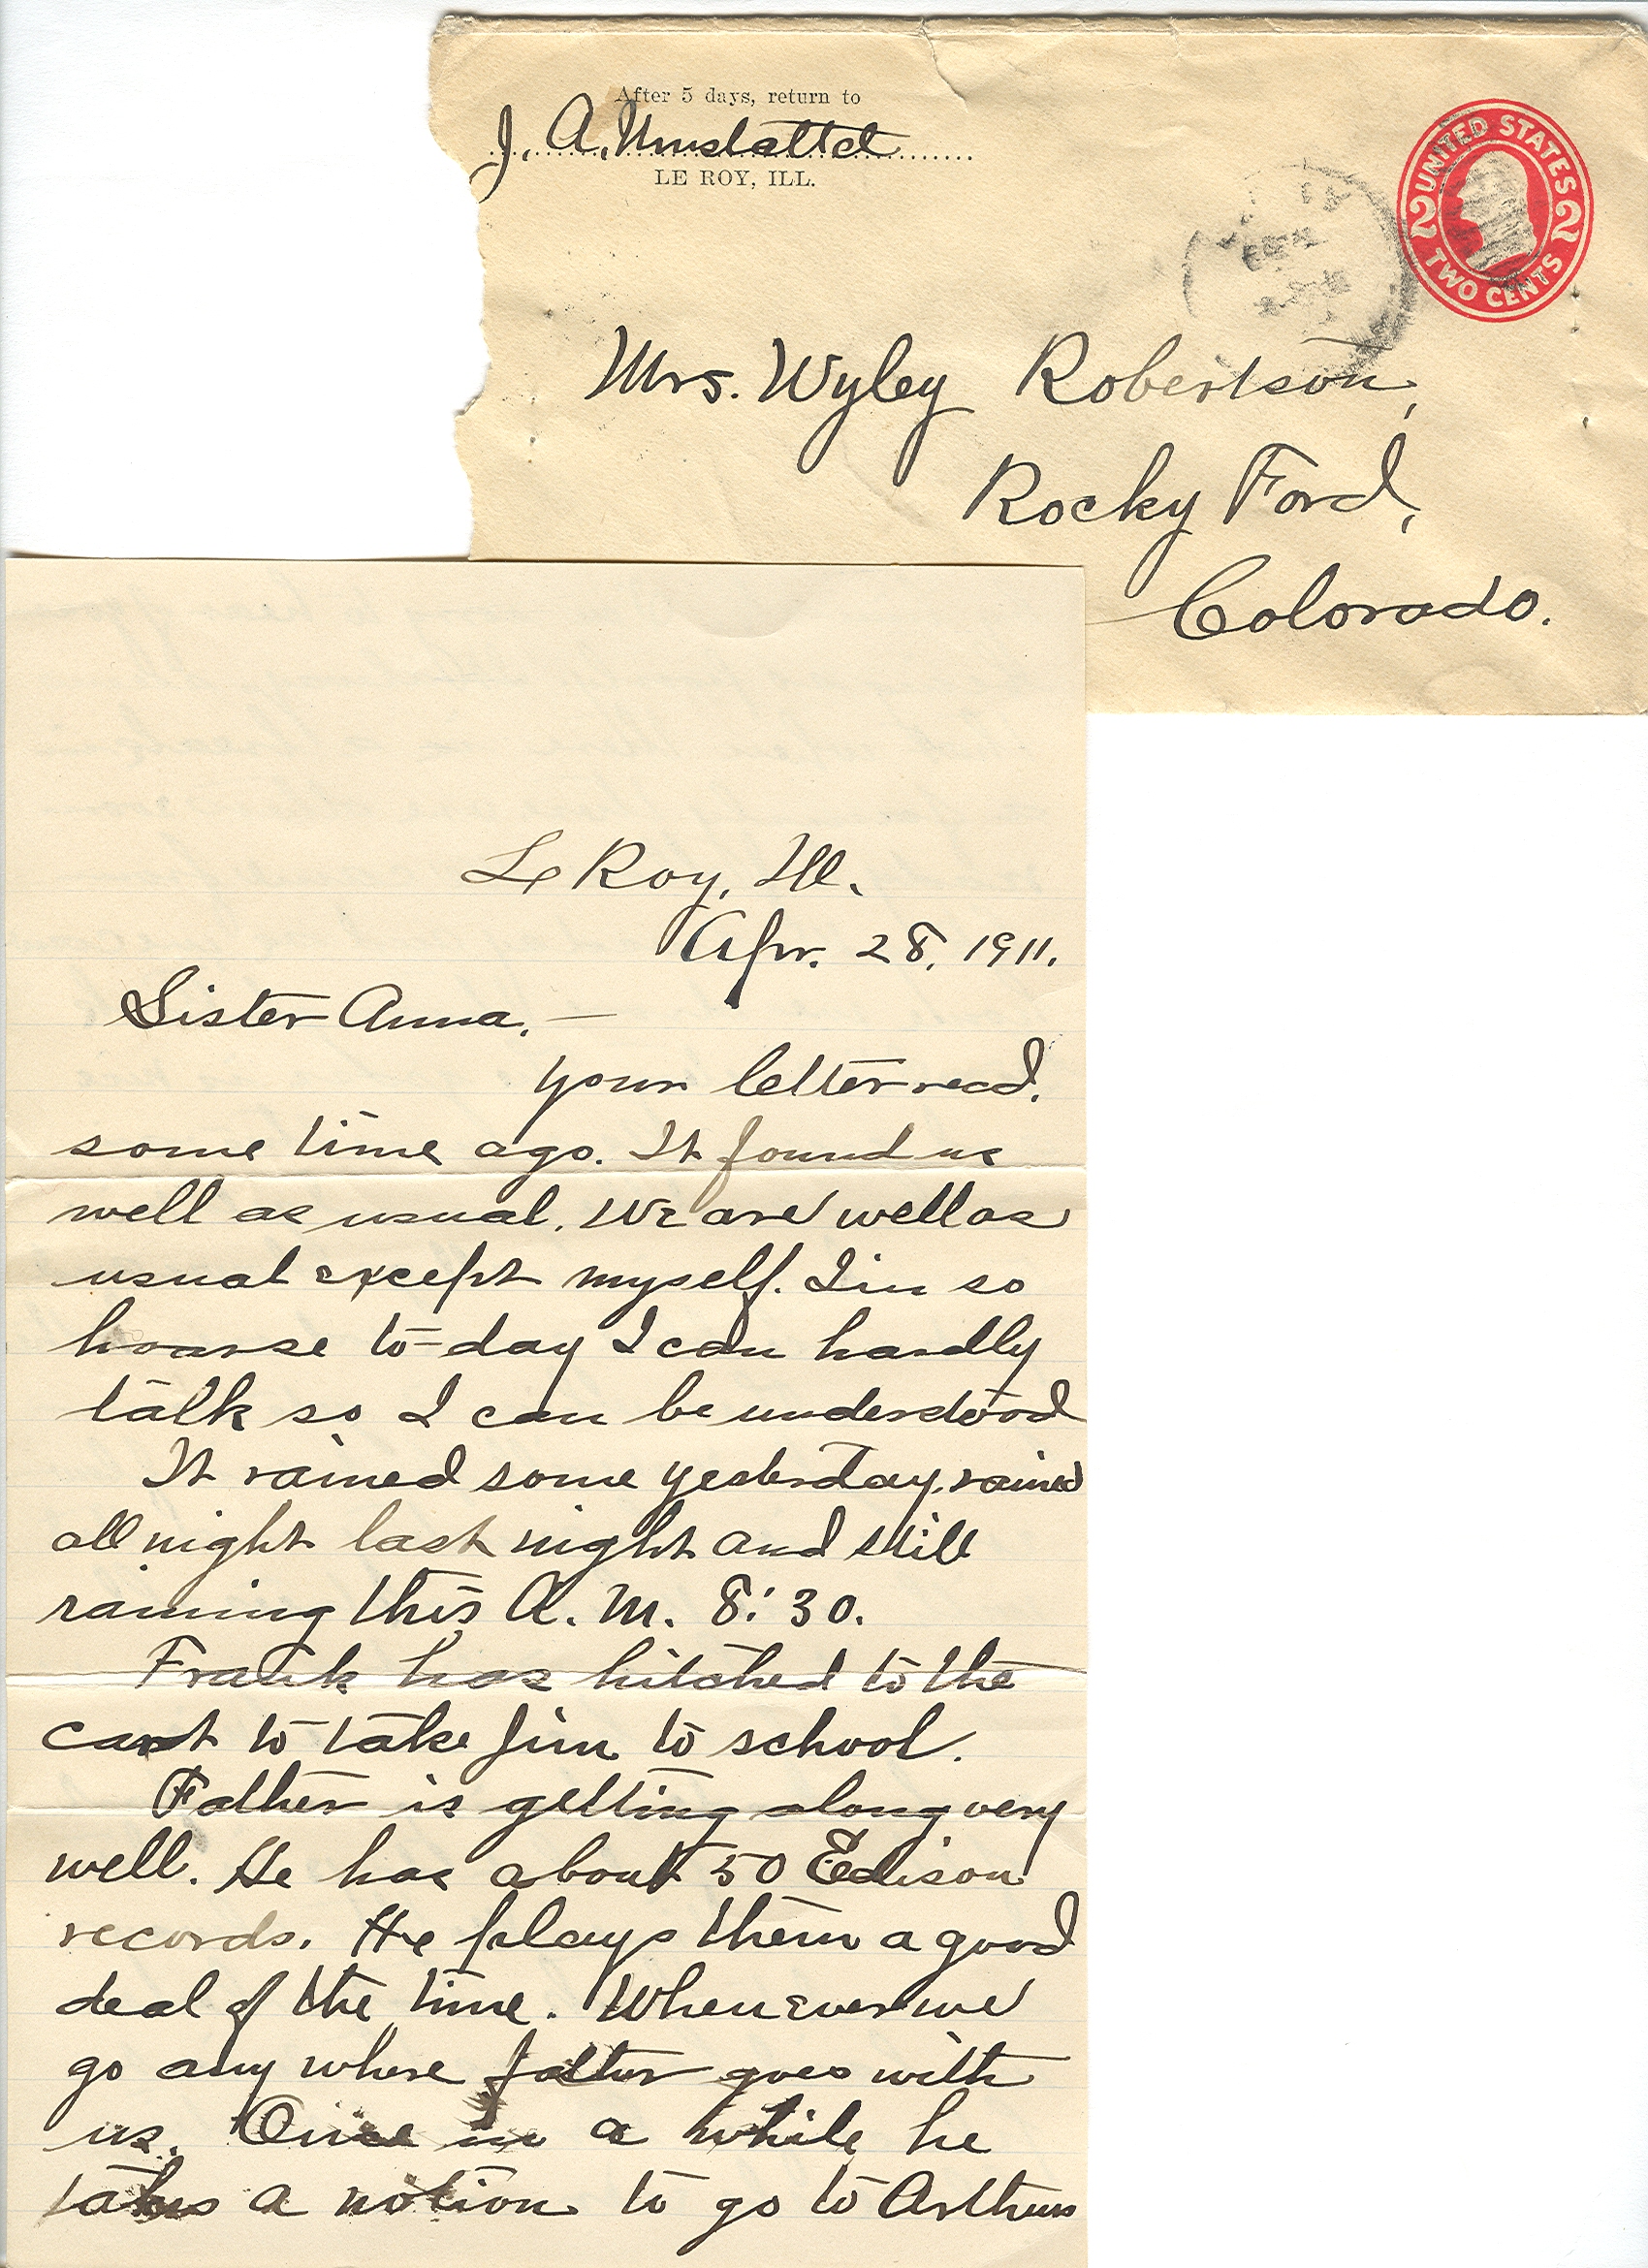 After 5 days, return to
J. A. Umstattd
LE ROY, ILL.
UNITED STATES
2 2
TWO CENTS
Mrs. Wyley Robertson,
Rocky Ford,
Colorado.
Le Roy, Ill.
Apr. 28, 1911.
Sister Anna. —
your letter recd.
some time ago. It found us
well as usual. We are well as
usual except myself. I'm so
hoarse to-day I can hardly
talk so I can be understood
It rained some yesterday, rained
all night last night and still
raining this A. M. 8:30.
Frank has hitched to the
cart to take Jim to school.
Father is getting along very
well. He has about 50 Edison
records. He plays them a good
deal of the time. Whenever we
go any where father goes with
us. Once in a while he
takes a notion to go to Arthurs